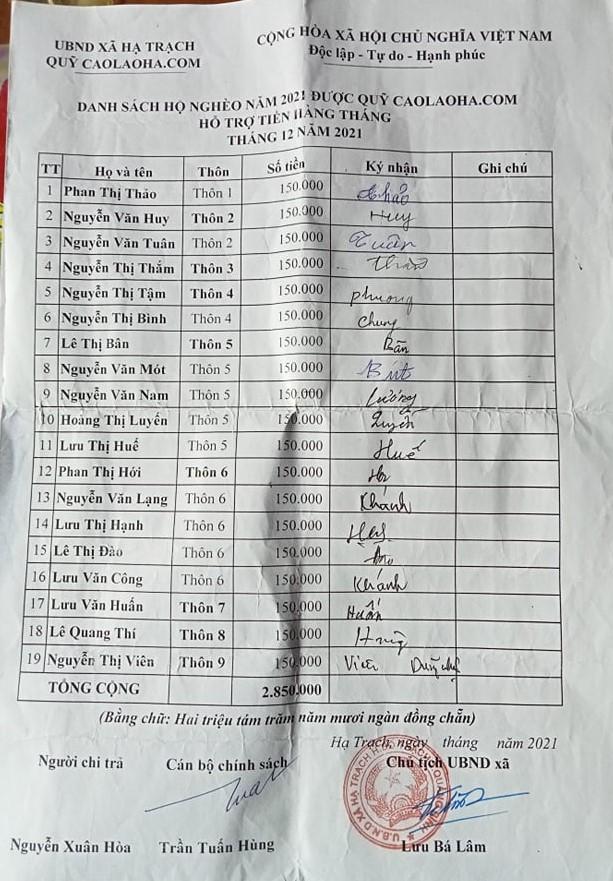 UBND XÃ HẠ TRẠCH
QUỸ CAOLAOHA.COM
CỘNG HÒA XÃ HỘI CHỦ NGHĨA VIỆT NAM
Độc lập - Tự do - Hạnh phúc
DANH SÁCH HỘ NGHÈO NĂM 2021 ĐƯỢC QUỸ CAOLAOHA.COM
HỖ TRỢ TIỀN HÀNG THÁNG
THÁNG 12 NĂM 2021
TT Họ và tên Thôn Số tiền Ký nhận Ghi chú
1 Phan Thị Thảo Thôn 1 150.000 Thảo
2 Nguyễn Văn Huy Thôn 2 150.000 Huy
3 Nguyễn Văn Tuân Thôn 2 150.000 Tuân
4 Nguyễn Thị Thắm Thôn 3 150.000
5 Nguyễn Thị Tậm Thôn 4 150.000 phương
6 Nguyễn Thị Bình Thôn 4 150.000 chung
7 Lê Thị Bân Thôn 5 150.000 Bân
8 Nguyễn Văn Mót Thôn 5 150.000
9 Nguyễn Văn Nam Thôn 5 150.000 Lương
10 Hoàng Thị Luyến Thôn 5 150.000
11 Lưu Thị Huế Thôn 5 150.000 Huế
12 Phan Thị Hới Thôn 6 150.000
13 Nguyễn Văn Lạng Thôn 6 150.000 Khánh
14 Lưu Thị Hạnh Thôn 6 150.000
15 Lê Thị Đào Thôn 6 150.000
16 Lưu Văn Công Thôn 6 150.000 Khánh
17 Lưu Văn Huấn Thôn 7 150.000 Huấn
18 Lê Quang Thí Thôn 8 150.000
19 Nguyễn Thị Viên Thôn 9 150.000 Viên
TỔNG CỘNG 2.850.000
(Bằng chữ: Hai triệu tám trăm năm mươi ngàn đồng chẵn)
Hạ Trạch, ngày tháng năm 2021
Người chi trả Cán bộ chính sách Chủ tịch UBND xã
Nguyễn Xuân Hòa Trần Tuấn Hùng Lưu Bá Lâm